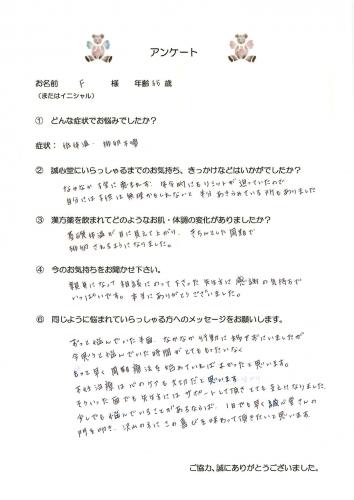 アンケート
お名前 F 様 年齢 35 歳
(またはイニシャル)
① どんな症状でお悩みでしたか?
症状: 低体温・排卵不順
② 誠心堂にいらっしゃるまでのお気持ち、きっかけなどはいかがでしたか?
なかなか子宝に恵まれず、年令的にもリミットが迫っていたので
自分には子供は無理かもしれないと半分あきらめている所もありました
③ 漢方薬を飲まれてどのようなお肌・体調の変化がありましたか?
基礎体温が目に見えて上がり、きちんとした周期で
排卵されるようになりました。
④ 今のお気持ちをお聞かせ下さい。
親身になって相談にのって下さった先生方に感謝の気持ちで
いっぱいです。本当にありがとうございました。
⑥ 同じように悩まれていらっしゃる方へのメッセージをお願いします。
ずっと悩んでいた半面、なかなか行動に移せずにいましたが
今思うと悩んでいた時間がとてももったいなく
もっと早く周期療法を始めていればよかったと思います。
不妊治療は心のケアも大切だと思います
そういった面でも先生方にはサポートして頂きとても支えになりました。
少しでも悩んでいることがあるならば、1日でも早く誠心堂さんの
門を叩き、沢山の方にこの喜びを味わって頂きたいと思います
ご協力、誠にありがとうございました。